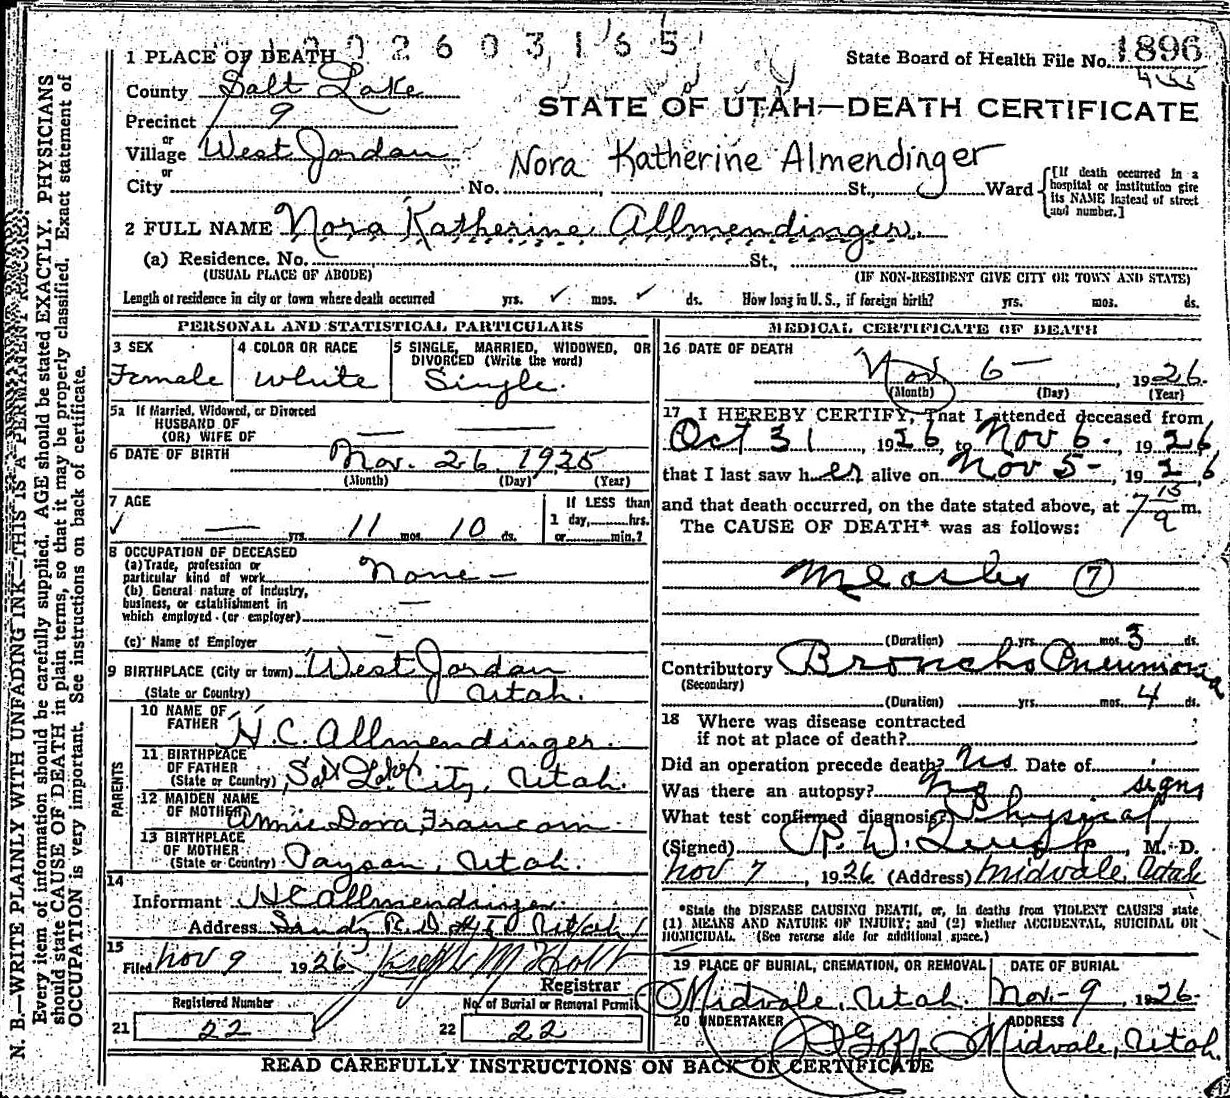 2026031651
1 PLACE OF DEATH
State Board of Health File No. 1896
County Salt Lake
STATE OF UTAH—DEATH CERTIFICATE
Precinct 9
or
Village West Jordan
Nora Katherine Almendinger
or
City No. St., Ward
[If death occurred in a hospital or institution give its NAME instead of street and number.]
2 FULL NAME Nora Katherine Allmendinger.
(a) Residence. No. St.,
(USUAL PLACE OF ABODE) (IF NON-RESIDENT GIVE CITY OR TOWN AND STATE)
Length of residence in city or town where death occurred yrs. ✓ mos. ✓ ds. How long in U. S., if foreign birth? yrs. mos. ds.
PERSONAL AND STATISTICAL PARTICULARS
3 SEX
Female
4 COLOR OR RACE
White
5 SINGLE, MARRIED, WIDOWED, OR
DIVORCED (Write the word)
Single.
5a If Married, Widowed, or Divorced
HUSBAND OF
(OR) WIFE OF
6 DATE OF BIRTH Nov. 26. 1925
(Month) (Day) (Year)
7 AGE
✓ — yrs. 11 mos. 10 ds.
If LESS than
1 day, hrs.
or min.?
8 OCCUPATION OF DECEASED
(a) Trade, profession or
particular kind of work None —
(b) General nature of industry,
business, or establishment in
which employed (or employer) —
(c) Name of Employer —
9 BIRTHPLACE (City or town) West Jordan
(State or Country) Utah.
PARENTS
10 NAME OF
FATHER H. C. Allmendinger.
11 BIRTHPLACE
OF FATHER
(State or Country) Salt Lake City, Utah.
12 MAIDEN NAME
OF MOTHER Annie Dora Francom.
13 BIRTHPLACE
OF MOTHER
(State or Country) Payson, Utah.
14
Informant H C Allmendinger
Address Sandy R. D. Utah
15
Filed Nov 9 1926 Joseph M Holt
Registrar
Registered Number
21 22
No. of Burial or Removal Permit
22 22
MEDICAL CERTIFICATE OF DEATH
16 DATE OF DEATH
Nov 6 — , 1926.
(Month) (Day) (Year)
17 I HEREBY CERTIFY, That I attended deceased from
Oct 31 , 1926 to Nov 6. 1926
that I last saw her alive on Nov 5 - , 1926
and that death occurred, on the date stated above, at 7 15 a m.
The CAUSE OF DEATH* was as follows:
Measles 7
(Duration) yrs. mos. 3 ds.
Contributory Broncho Pneumonia
(Secondary)
(Duration) yrs. mos. 4 ds.
18 Where was disease contracted
if not at place of death?
Did an operation precede death? No Date of
Was there an autopsy? No
What test confirmed diagnosis? Physical signs
(Signed) R. W. , M. D.
Nov 7 , 1926 (Address) Midvale, Utah
*State the DISEASE CAUSING DEATH, or, in deaths from VIOLENT CAUSES state
(1) MEANS AND NATURE OF INJURY; and (2) whether ACCIDENTAL, SUICIDAL OR
HOMICIDAL. (See reverse side for additional space.)
19 PLACE OF BURIAL, CREMATION, OR REMOVAL
Midvale, Utah.
DATE OF BURIAL
Nov - 9 , 1926.
20 UNDERTAKER
Goff,
ADDRESS
Midvale, Utah.
READ CAREFULLY INSTRUCTIONS ON BACK OF CERTIFICATE
N. B.—WRITE PLAINLY WITH UNFADING INK—THIS IS A PERMANENT RECORD.
Every item of information should be carefully supplied. AGE should be stated EXACTLY. PHYSICIANS
should state CAUSE OF DEATH in plain terms, so that it may be properly classified. Exact statement of
OCCUPATION is very important. See instructions on back of certificate.